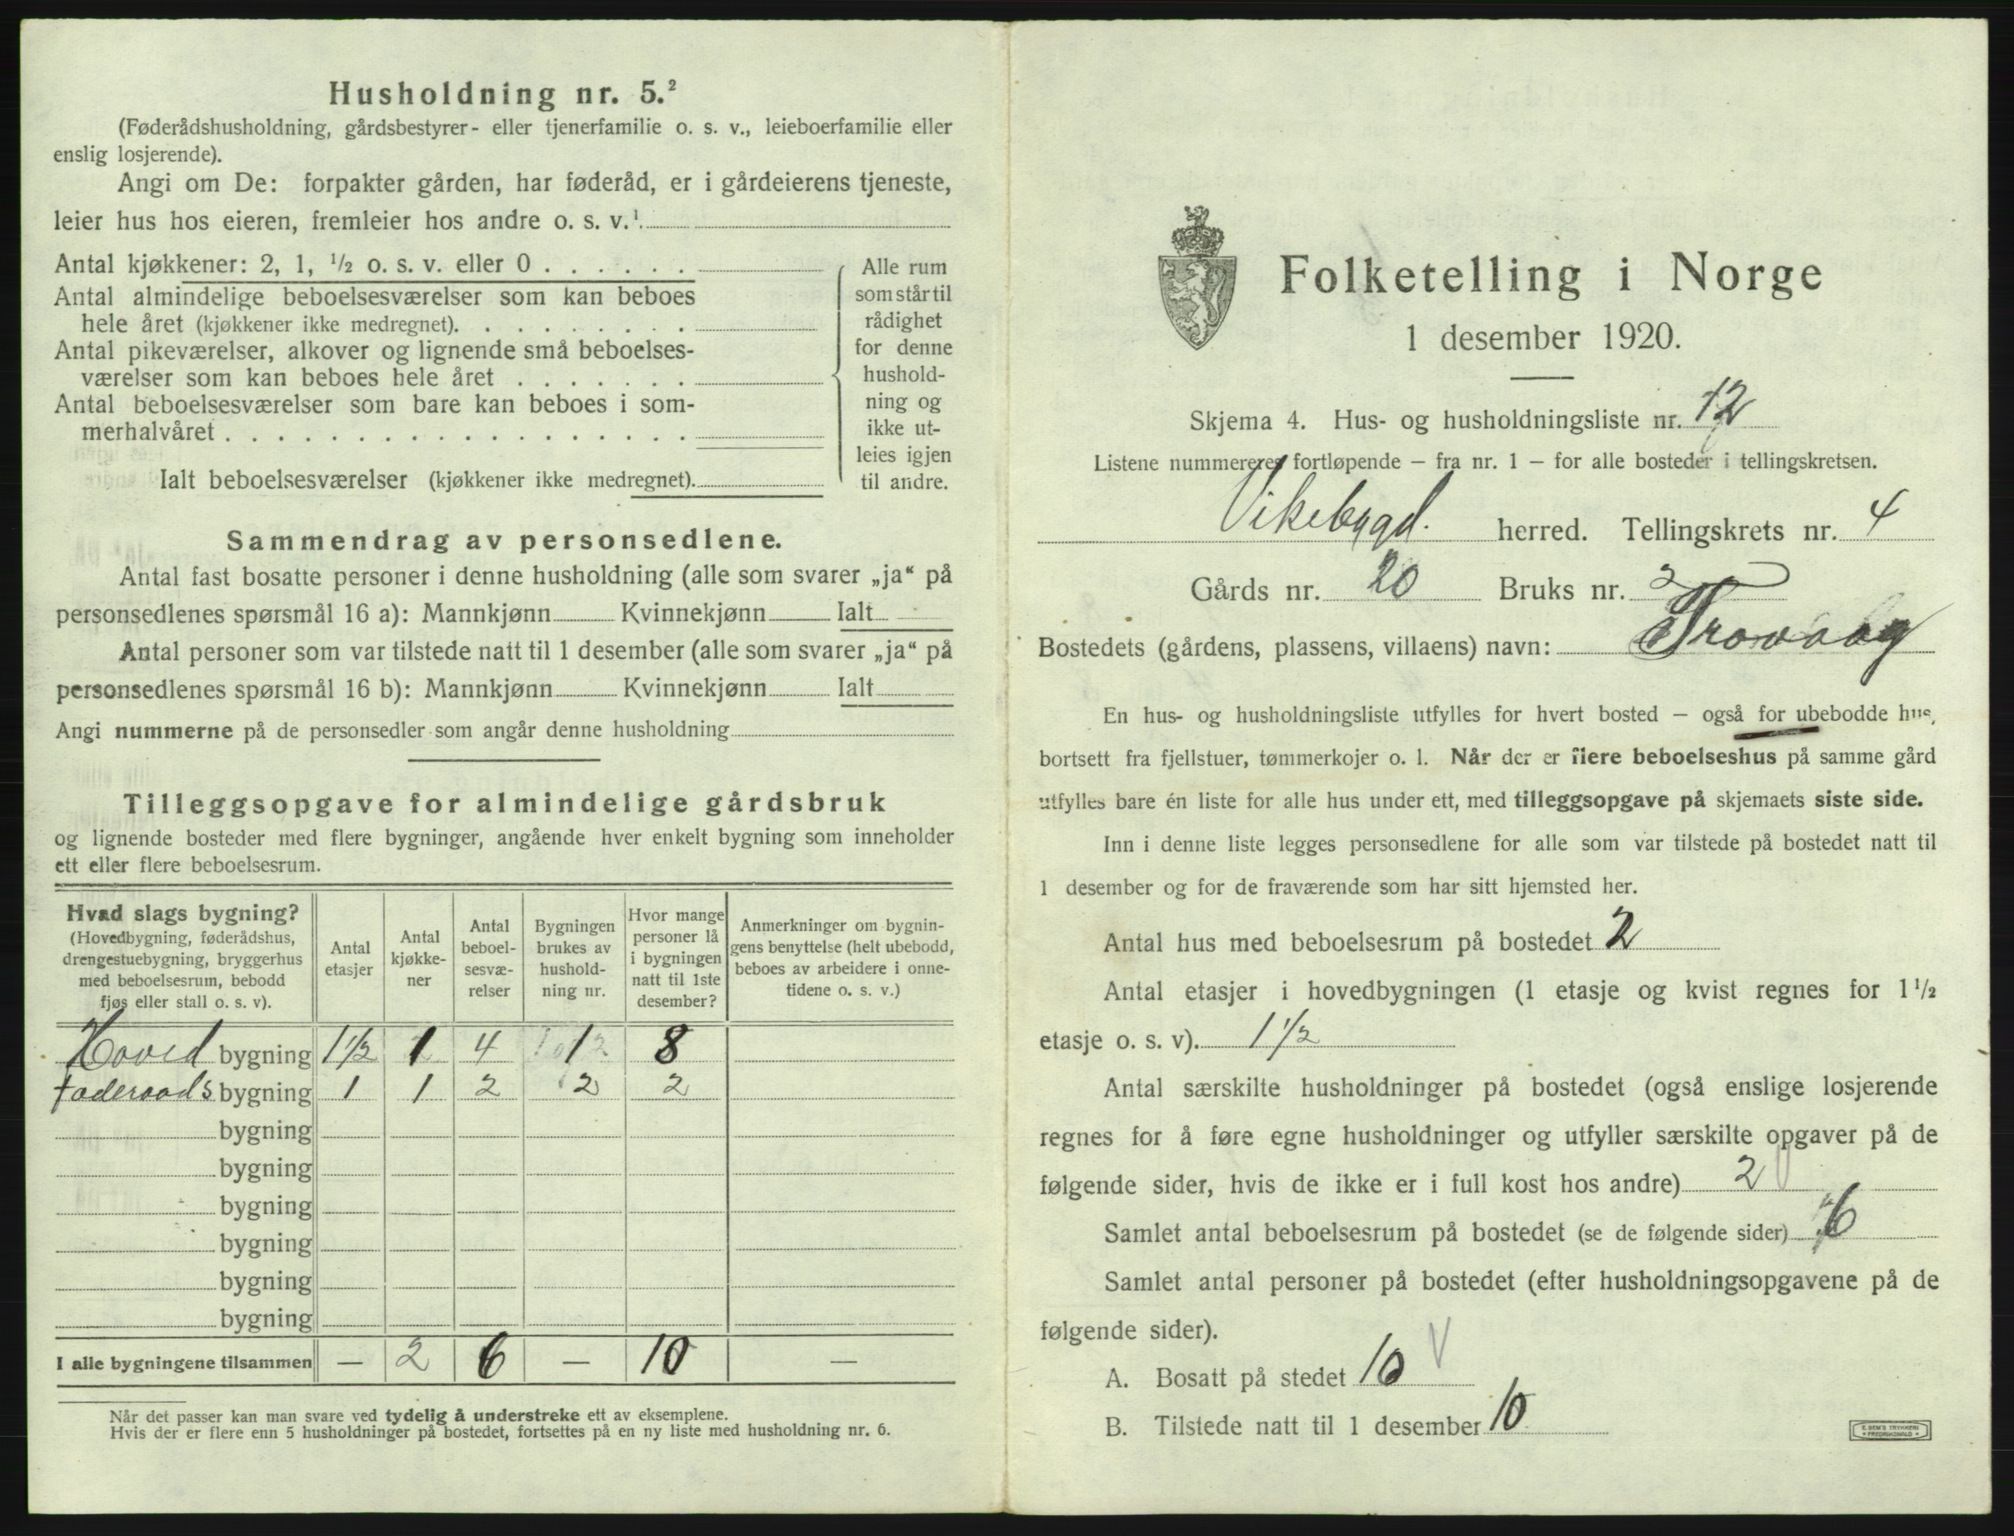 Husholdning nr. 5.²
(Føderådshusholdning, gårdsbestyrer- eller tjenerfamilie o. s. v., leieboerfamilie eller
enslig losjerende).
Angi om De: forpakter gården, har føderåd, er i gårdeierens tjeneste,
leier hus hos eieren, fremleier hos andre o. s. v.¹
Antal kjøkkener: 2, 1, ½ o. s. v. eller 0
Antal almindelige beboelsesværelser som kan beboes
hele året (kjøkkener ikke medregnet).
Antal pikeværelser, alkover og lignende små beboelses-
værelser som kan beboes hele året
Antal beboelsesværelser som bare kan beboes i som-
merhalvåret
Ialt beboelsesværelser (kjøkkener ikke medregnet).
Alle rum
som står til
rådighet
for denne
hushold-
ning og
ikke ut-
leies igjen
til andre.
Sammendrag av personsedlene.
Antal fast bosatte personer i denne husholdning (alle som svarer „ja“ på
personsedlenes spørsmål 16 a): Mannkjønn Kvinnekjønn Ialt
Antal personer som var tilstede natt til 1 desember (alle som svarer „ja“ på
personsedlenes spørsmål 16 b): Mannkjønn Kvinnekjønn Ialt
Angi nummerne på de personsedler som angår denne husholdning
Tilleggsopgave for almindelige gårdsbruk
og lignende bosteder med flere bygninger, angående hver enkelt bygning som inneholder
ett eller flere beboelsesrum.
Hvad slags bygning?
(Hovedbygning, føderådshus,
drengestuebygning, bryggerhus
med beboelsesrum, bebodd
fjøs eller stall o. s. v).
Antal
etasjer
Antal
kjøkke-
ner
Antal
beboel-
sesvæ-
relser
Bygningen
brukes av
hushold-
ning nr.
Hvor mange
personer lå
i bygningen
natt til 1ste
desember?
Anmerkninger om bygnin-
gens benyttelse (helt ubebodd,
beboes av arbeidere i onne-
tidene o. s. v.)
Hoved bygning 1½ 1 4 1 8
føderaads bygning 1 1 2 2 2
bygning
bygning
bygning
bygning
bygning
bygning
I alle bygningene tilsammen — 2 6 — 10 —
Når det passer kan man svare ved tydelig å understreke ett av eksemplene.
Hvis der er flere enn 5 husholdninger på bostedet, fortsettes på en ny liste med husholdning nr. 6.
Folketelling i Norge
1 desember 1920.
Skjema 4. Hus- og husholdningsliste nr. 12
Listene nummereres fortløpende – fra nr. 1 – for alle bosteder i tellingskretsen.
Vikebygd. herred. Tellingskrets nr. 4
Gårds nr. 20 Bruks nr. 2
Bostedets (gårdens, plassens, villaens) navn: Trovaag
En hus- og husholdningsliste utfylles for hvert bosted – også for ubebodde hus,
bortsett fra fjellstuer, tømmerkojer o. l. Når der er flere beboelseshus på samme gård
utfylles bare én liste for alle hus under ett, med tilleggsopgave på skjemaets siste side.
Inn i denne liste legges personsedlene for alle som var tilstede på bostedet natt til
1 desember og for de fraværende som har sitt hjemsted her.
Antal hus med beboelsesrum på bostedet 2
Antal etasjer i hovedbygningen (1 etasje og kvist regnes for 1½
etasje o. s. v). 1½
Antal særskilte husholdninger på bostedet (også enslige losjerende
regnes for å føre egne husholdninger og utfyller særskilte opgaver på de
følgende sider, hvis de ikke er i full kost hos andre) 2
Samlet antal beboelsesrum på bostedet (se de følgende sider) 6
Samlet antal personer på bostedet (efter husholdningsopgavene på de
følgende sider).
A. Bosatt på stedet 10
B. Tilstede natt til 1 desember 10